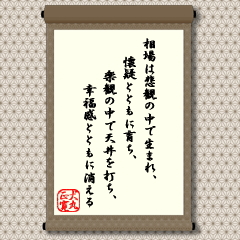 相場は悲観の中で生まれ、
懐疑とともに育ち、
楽観の中で天井を打ち、
幸福感とともに消える